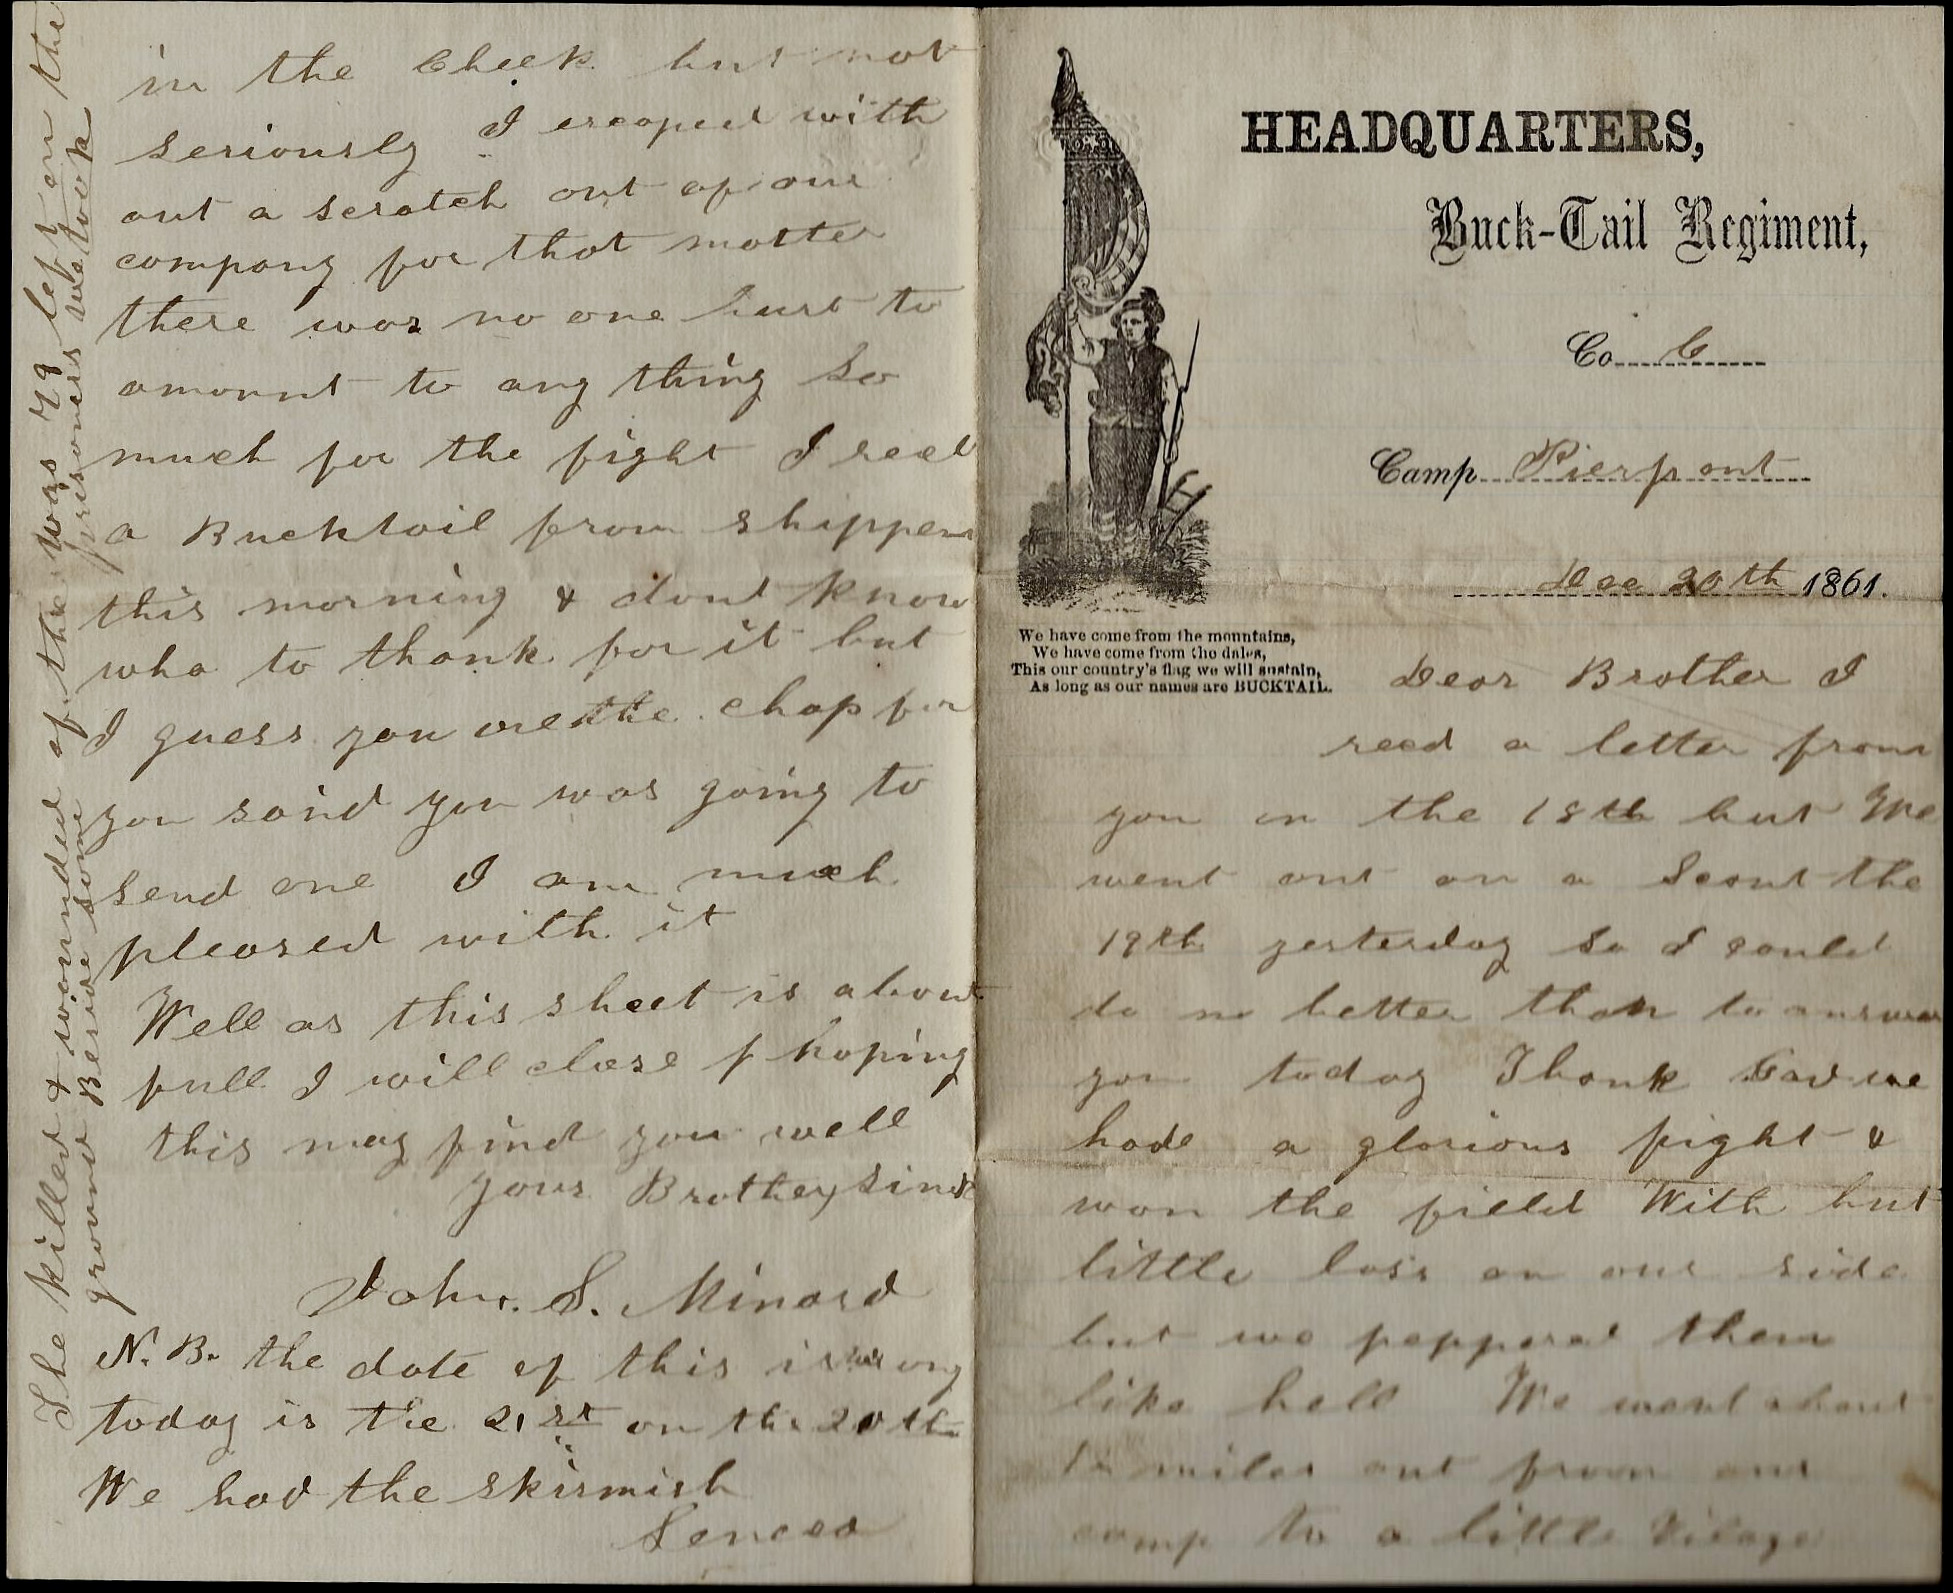 HEADQUARTERS,
Buck-Tail Regiment,
Co C
Camp Pierpont
Dec 20th 1861.
We have come from the mountains,
We have come from the dales,
This our country's flag we will sustain,
As long as our names are BUCKTAIL.
Dear Brother I
recd a letter from
you on the 18th but We
went out on a Scout the
19th yesterday so I could
do no better than to answer
you today Thank God we
hade a glorious fight &
won the field With but
little loss on our side
but we peppered them
like hell We went about
miles out from our
camp to a little Vilage
in the Cheek but not
seriously I escaped with
out a scratch out of our
company for that matter
there was no one hurt to
amount to any thing so
much for the fight I recd
a Bucktail from shippen
this morning & dont know
who to thank for it but
I guess you are the chap for
you said you was going to
send one I am much
pleased with it
Well as this sheet is about
full I will close hoping
this may find you well
your Brother
John. S. Minard
N. B. the date of this is wrong
today is the 21st on the 20th
We had the skirmish
The killed & wounded of them was 79 left on the
ground Beside some prisoners we took